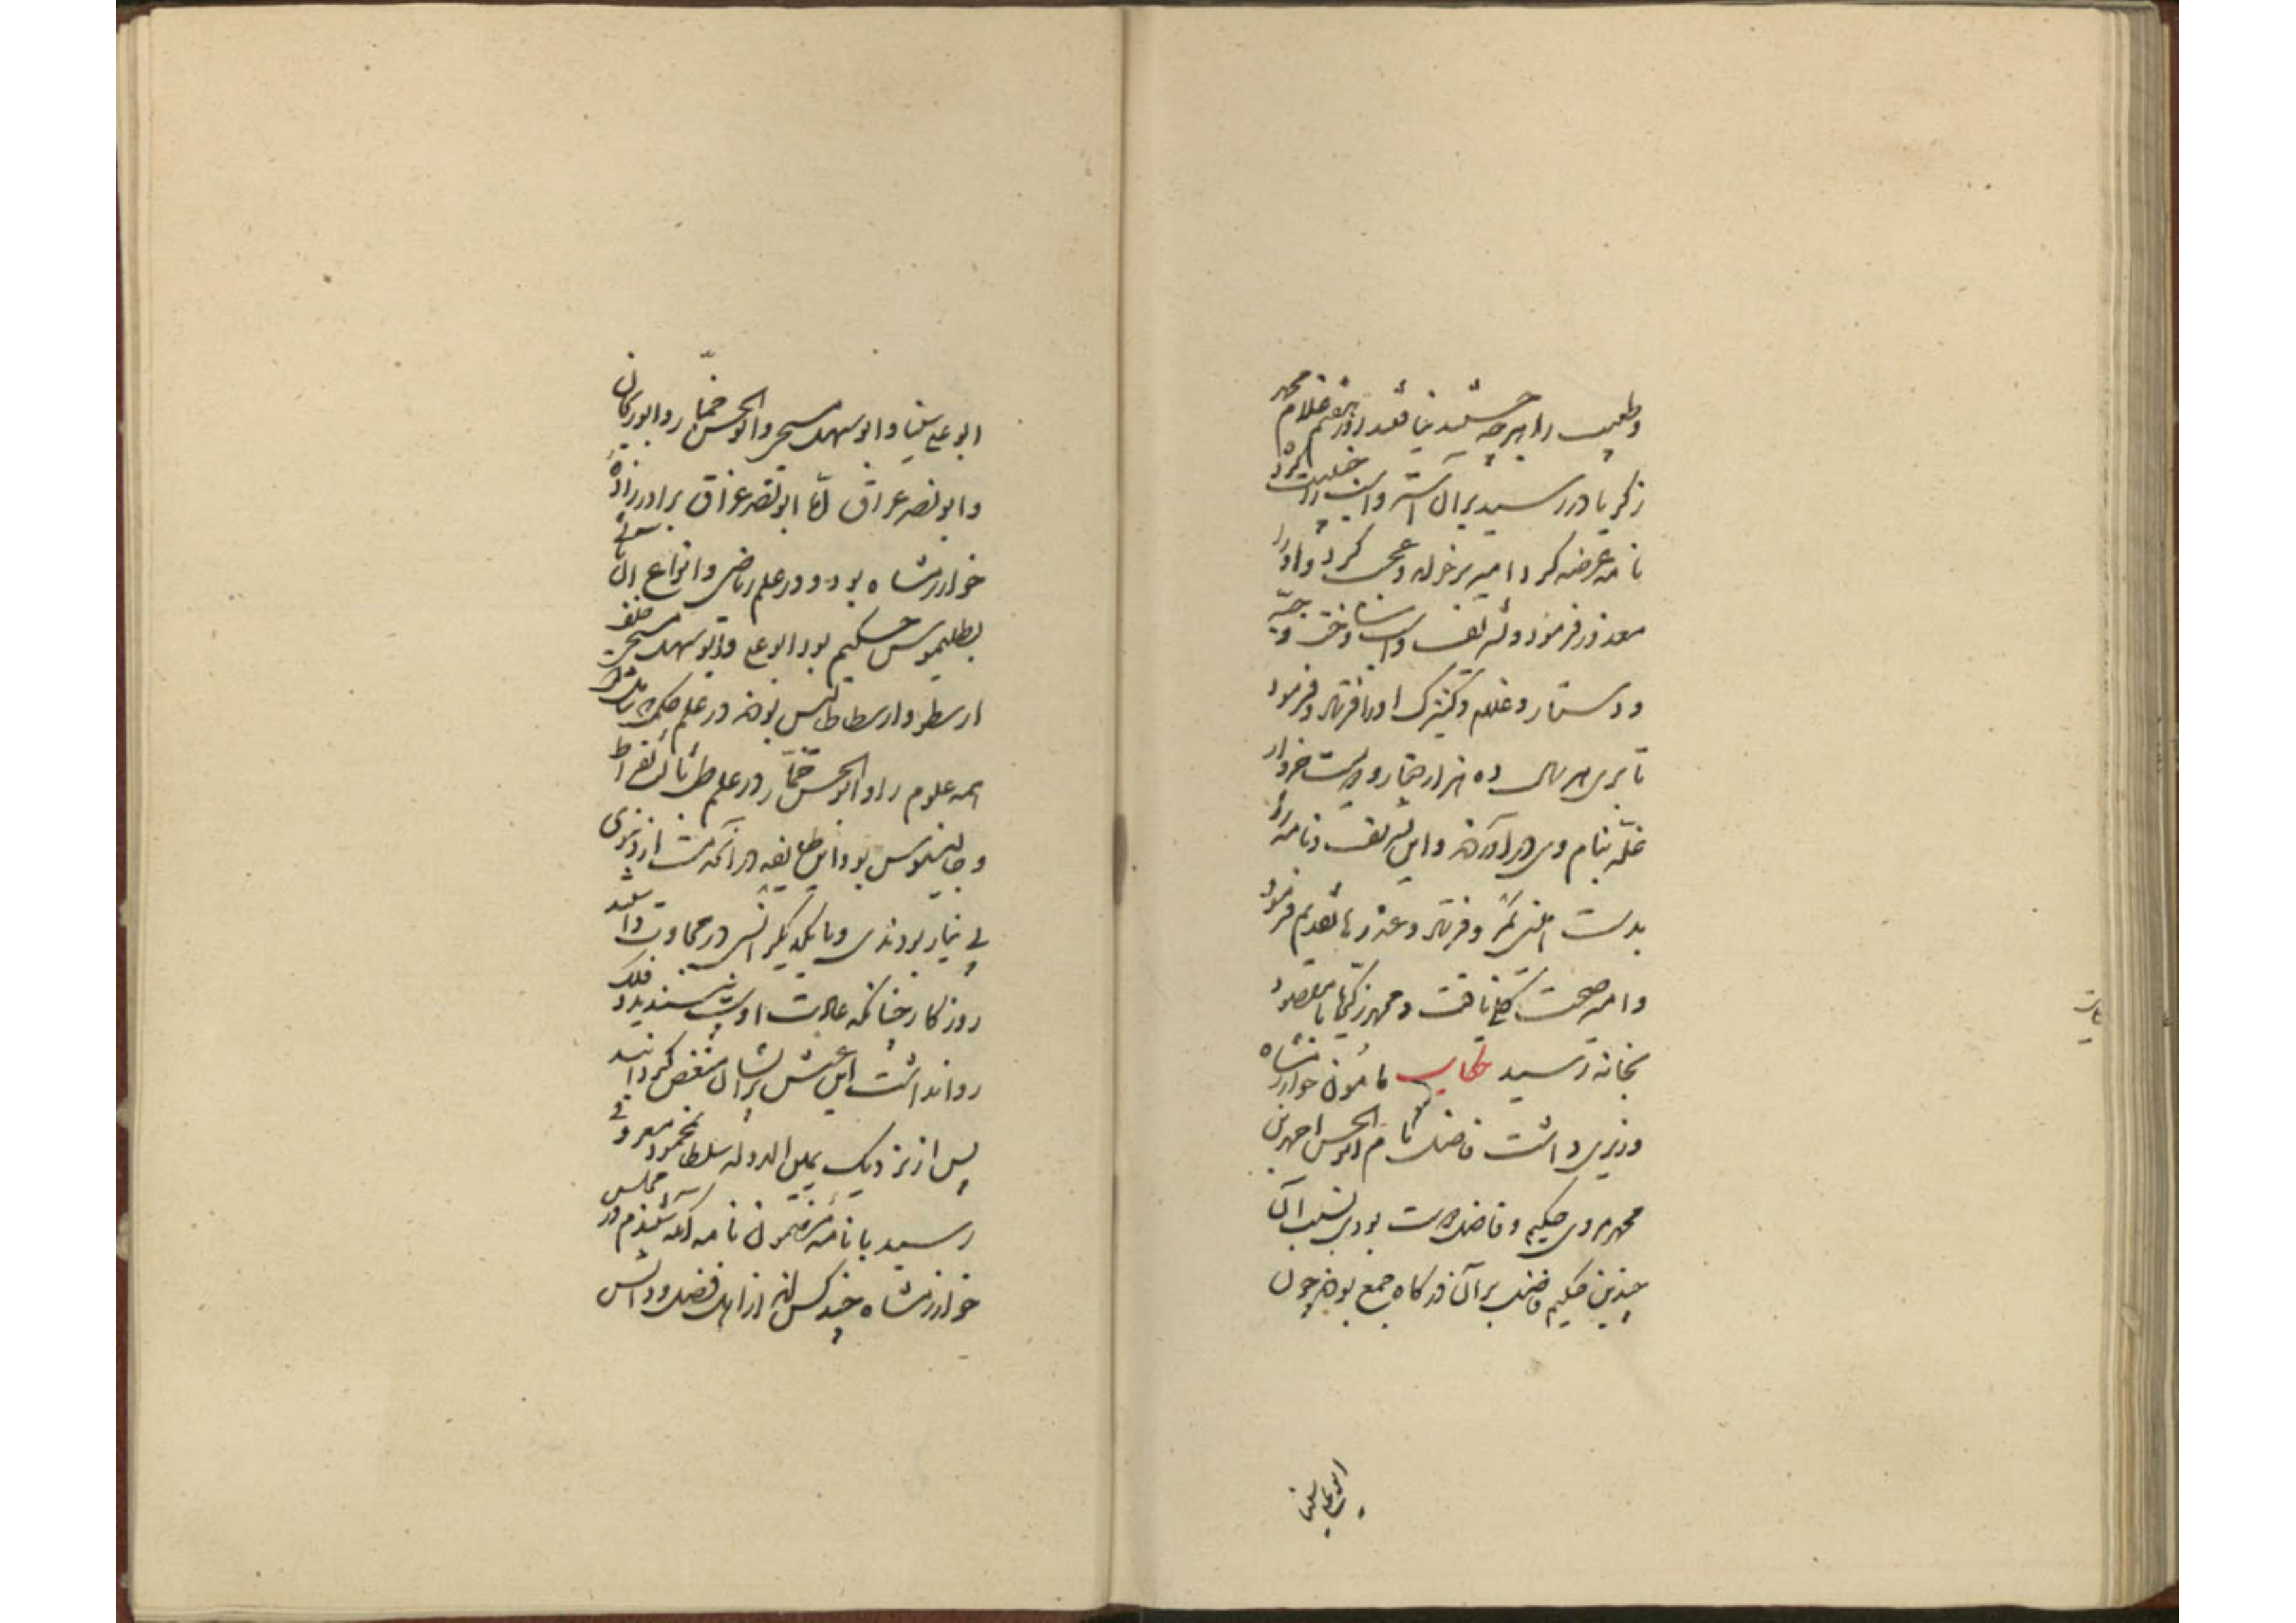 و طبیب را هر چه جستند نیافتند روز هفتم غلام محمد
زکریا در رسید بر آن استر و اسب را جنیبت کرده
نامه عرضه کرد امیر بر خواند و عجب کرد و او را
معذور فرمود و تشریف و اسب و ساخت و جبه
و دستار و غلام و کنیزک او را فرستاد و فرمود
تا بری هر سال ده هزار دینار و دویست خروار
غله بنام وی در آوردند و این تشریف و نامه را
بدست معتمدی فرستاد و عذرها تقدیم فرمود
و امیر صحت کلی یافت و محمد زکریا با مقصود
بخانه رسید حکایت مأمون خوارزمشاه
وزیری داشت فاضل نام ابوالحسن احمد بن
محمد مردی حکیم و فاضل دوست بودی بسبب آن
چندین حکیم فاضل بر آن درگاه جمع بودند چون
ابوعلی سینا
ابو علی سینا و ابو سهل مسیحی و ابوالحسن خمّار و ابوریحان
و ابو نصر عراق امّا ابو نصر عراق برادرزاده
خوارزمشاه بود و در علم ریاضی و انواع آن ثانی
بطلیموس حکیم بود ابو علی و ابو سهل مسیحی خلف
ارسطو و ارسطاطالیس بودند در علم حکمت که شامل است
همه علوم را و ابوالحسن خمّار در علم طب ثالث بقراط
و جالینوس بود این طایفه در آن خدمت از دنیوی
بی نیاز بودندی و با یکدیگر انس در محاورت داشتند
روزگار چنانکه عادت اوست نپسندید و فلک
روا نداشت این عیش بر ایشان منغص گردانید
پس از نزدیک یمین الدوله سلطان محمود معروفی
رسید با نامه مضمون نامه آنکه شنیدم در مجلس
خوارزمشاه چند کس اند از اهل فضل و دانش